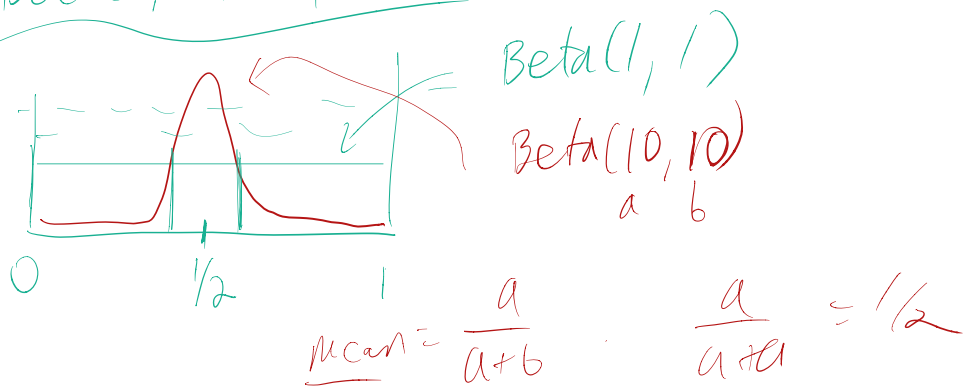 Beta(1, 1)
Beta(10, 10)
a b
0 1/2 1
mean = a/(a+b) . a/(a+a) = 1/2